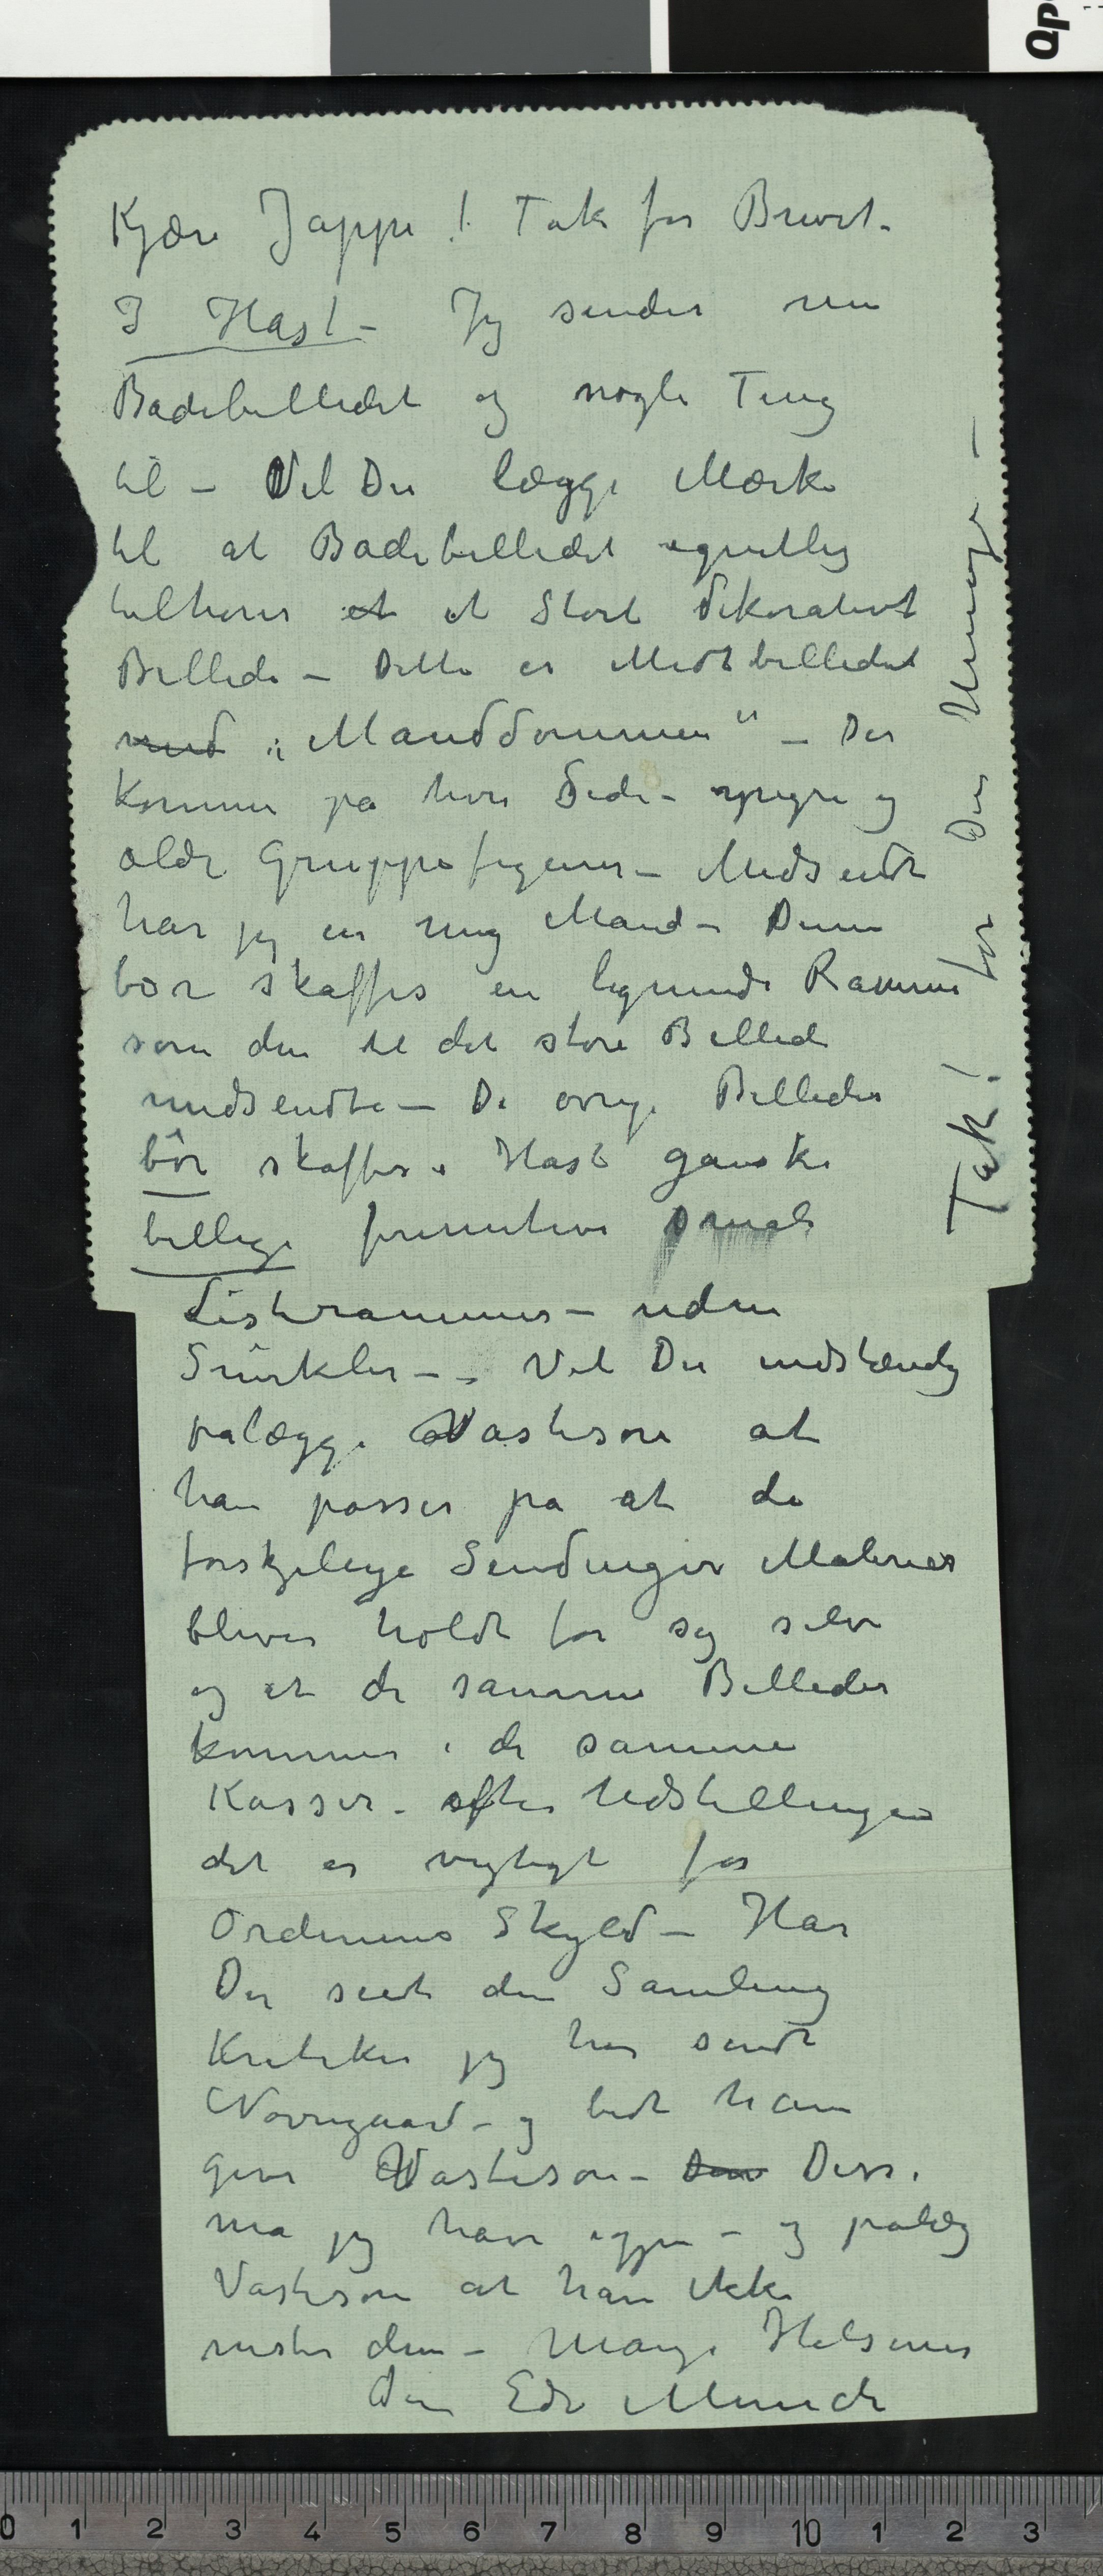 Kjære Jappe! Tak for Brevet.
I Hast – Jeg sender nu
Badebilledet og nogle Ting
til – Vil Du lægge Mærke
til at Badebilledet egentlig
tilhører et et stort dekorativt
Billede – Dette er Midtbilledet
med „Manddommen" – Der
kommer på hver Side – yngre og
ældre Gruppefigurer – Medsendt
har jeg en ung Mand – Denne
bør skaffes en lignende Ramme
som den til det store Billede
medsendte – De øvrige Billeder
bør skaffes i Hast ganske
billige primitive smale
Listerammer – uden
Snirkler – – Vil Du indstændig
pålægge Vasteson at
han passer på at de
forskjelige Sendinger Malerier
bliver holdt for sig selv
og at de samme Billeder
kommer i de samme
Kasser – efter Udstillingen
det er vigtigt for
Ordenens Skyld – Har
Du seet den Samling
Kritiker jeg har sendt
Nørregaard – og bedt ham
give Vasteson – Den Disse
må jeg have igjen – og pålæg
Vasteson at han ikke
mister dem – Mange Hilsener
Din Edv Munch
Tak! for Din Umage –
Op
0 1 2 3 4 5 6 7 8 9 10 1 2 3